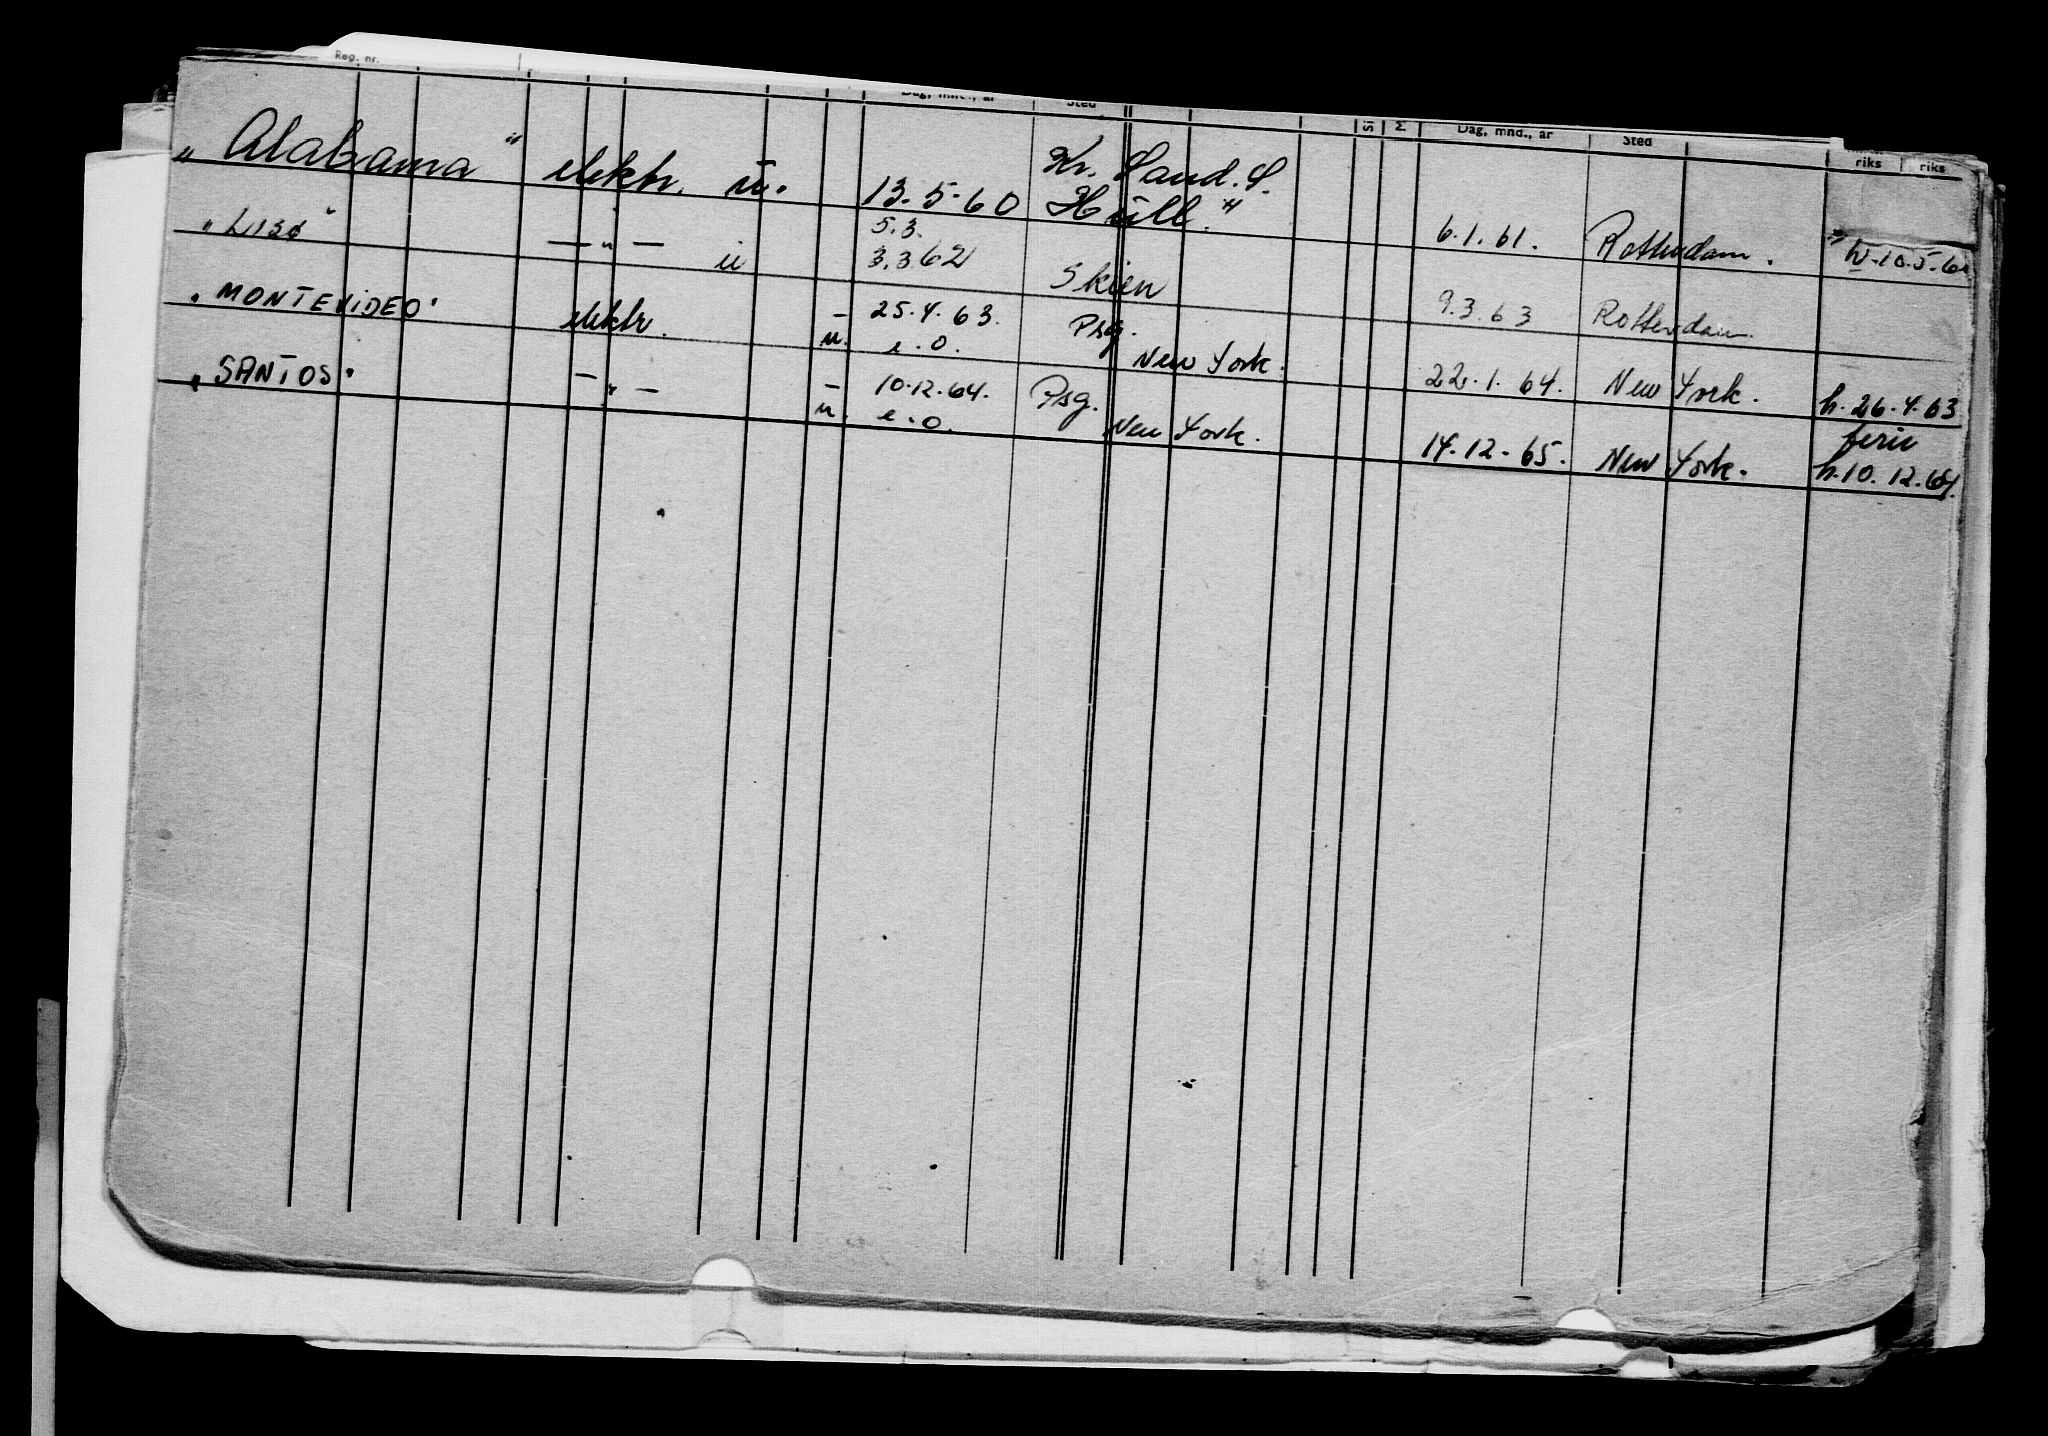 Reg. nr.
Dag, mnd., år Sted Dag, mnd., år Sted riks riks
„Alabama" elektr. u. 13.5.60 Kr. Sand. S.
Hull. 6.1.61. Rotterdam. h.10.5.60
— " — u 5.3.
3.3.62 Skien 9.3.63 Rotterdam
"MONTEVIDEO" elektr. - 25.4.63. Psg.
u. e.o. New York. 22.1.64. New York. h.26.4.63
"SANTOS" — " — - 10.12.64. Psg. ferie
u. e.o. New York. 14.12.65. New York. h.10.12.64.